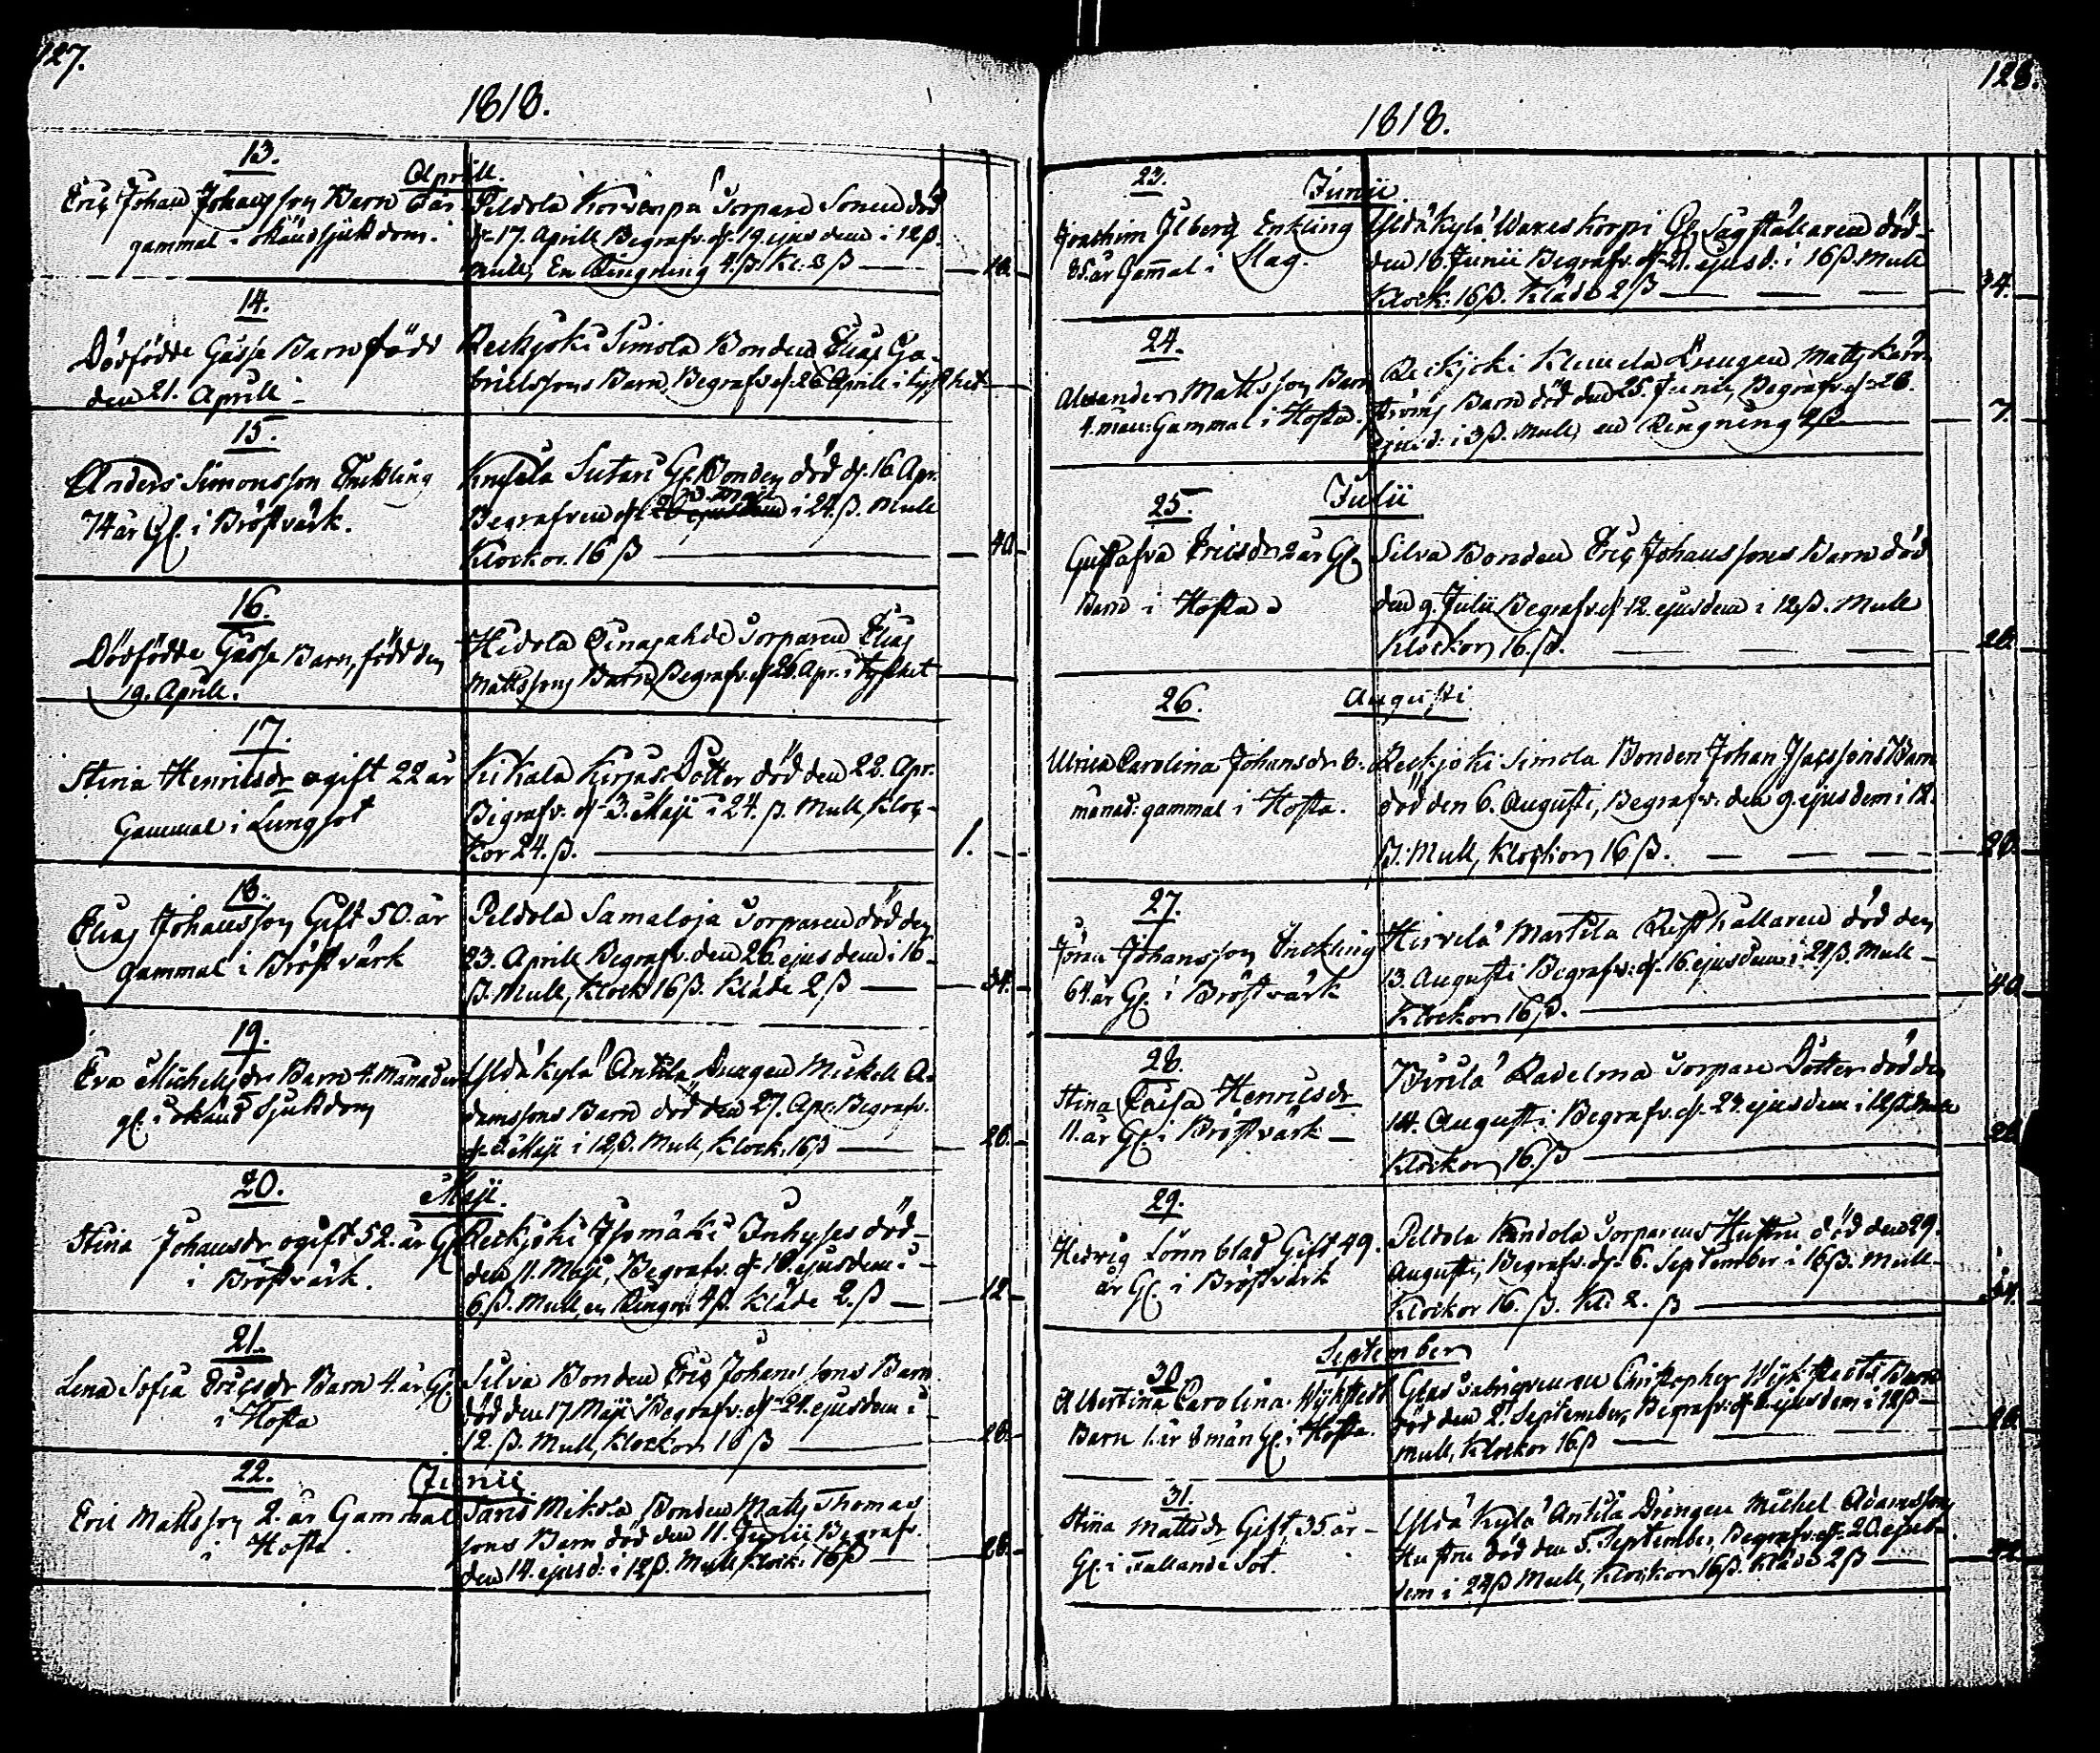 127.
1818.
13.
Aprill.
Eric Johan Johansson Barn 6 år
gammal i okänd sjukdom.
Peldola Torpare Sonen död
d. 17. Aprill Begrafv. d. 19. ejusdem i 12 ß.
mull, En Ringning 4. ß. Kl. 2 ß
18.
14.
Dödfödde Gåsse Barn född
den 21. Aprill
Reckjoki Simola Bonden Elias Ga-
brielssons Barn, Begrafv. d. 26 Aprill i tysthet
15.
Anders Simonsson Enckling
74 år Gl. i Bröstvärk.
Sutari Gl. Bonden död d. 16 Apr.
Begrafven d. 3. Maji i 24. ß. Mull
Klockor. 16 ß
40.
16.
Dödfödde Gåsse Barn, född den
19. Aprill.
Torparen Elias
Mattssons Barn Begrafv. d. 26. Apr. i tysthet
17.
Stina Henricsdr ogift 22 år
Gammal i Lungsot
Kikala Dotter död den 22. Apr.
Begrafv. d. 3. Maji i 24. ß. Mull, Kloc-
kor 24. ß.
1.
18.
Elias Johansson Gift 50. år
gammal i Bröstvärk
Peldola Samaloja Torparen död den
23. Aprill Begrafv. den 26 ejusdem i 16
ß. Mull, Klock 16 ß. Kläde 2 ß
34.
19.
Eva Michelsdr Barn 4. Månader
gl. i okänd Sjukdom
Yldäkylä Anttila Drengen Mickell A-
damssons Barn död den 27. Apr. Begrafv.
d. 3. Maji i 12 ß. Mull, Klock. 16 ß
28.
20.
Maji.
Stina Johansdr ogift 52. år Gl.
i Bröstvärk.
Reckjoki Isomäki Inhyses död
den 11. Maji, Begrafv. d. 18. ejusdem i
6 ß. Mull, en Ringn. 4 ß. Kläde 2. ß
12.
21.
Lena Sofia Ericsdr Barn 4. år Gl.
i Hosta
Silva Bonden Eric Johanssons Barn
död den 17 Maji Begrafv. d. 24. ejusdem i
12. ß. Mull, Klockor 16 ß
28.
22.
Junii.
Eric Mattsson 2. år Gammal
i Hosta.
Mikola Bonden Matts Thomas
sons Barn död den 11. Junii Begrafv.
den 14. ejusd: i 12 ß. Mull Klock: 16 ß
28.
128.
1818.
23.
Junii.
Joachim Ilberg Enkling
85. år Gam̅al i Slag.
Yldäkylä Wares Korpi Gl. död
den 18. Junii Begrafv. d. 21. ejusd: i 16 ß. Mull
Klock: 16 ß. Kläde 2 ß
34.
24.
Alexander Mattsson Barn
4. mån: Gammal i Hosta.
Reckjoki Klemela Drengen Matts
Barn död den 25. Junii, Begrafv. d. 28.
ejusd: i 3 ß. Mull, en Ringning 4 ß.
7.
25.
Julii
Gustafva Ericsdr 2 år Gl.
Barn i Hosta
Silva Bonden Eric Johanssons Barn död
den 9. Julii Begrafv. d. 12. ejusdem i 12 ß. Mull
Klockor 16. ß.
28.
26.
Augusti
Ulrica Carolina Johansdr 6.
månad: gammal i Hosta.
Reckjoki Simola Bonden Johan Isacssons Barn
död den 6. Augusti, Begrafv: den 9. ejusdem i 12.
ß. Mull, Klockor 16 ß.
28.
27.
Jöran Johansson Enckling
64. år Gl. i Bröstvärk
Hirvelä Martila Rusthållaren död den
13. Augusti Begrafv: d. 16. ejusdem i 24 ß. Mull
Klockor 16 ß.
40
28.
Stina Caisa Henricsdr
11. år Gl. i Bröstvärk
Radelma Torpare Dotter död den
14. Augusti Begrafv. d. 24. ejusdem i 12 ß Mull
Klockor 16. ß
28
29.
Hedvig Lönnblad Gift 49.
år Gl. i Bröstvärk
Peldola Torparens Hustru död den 29.
Augusti, Begrafv. d. 6. September i 16 ß. Mull
Klockor 16. ß. Kl: 2. ß
34.
September
30
Albertina Carolina Wykstedt
Barn 1. år 8 mån Gl. i Hosta.
Christopher Wykstedts Barn
död den 2. September, Begrafv. d. 6. ejusdem i 12 ß
mull, Klockor 16 ß
28.
31.
Stina Mattsdr Gift 35 år
Gl. i Fallande Sot.
Yldä Kylä Antila Drengen Michel Adamssons
Hustru död den 5. September, Begrafv. d. 20. ejus-
dem i 24 ß Mull, Klockor 16 ß. Kläde 2 ß
42.